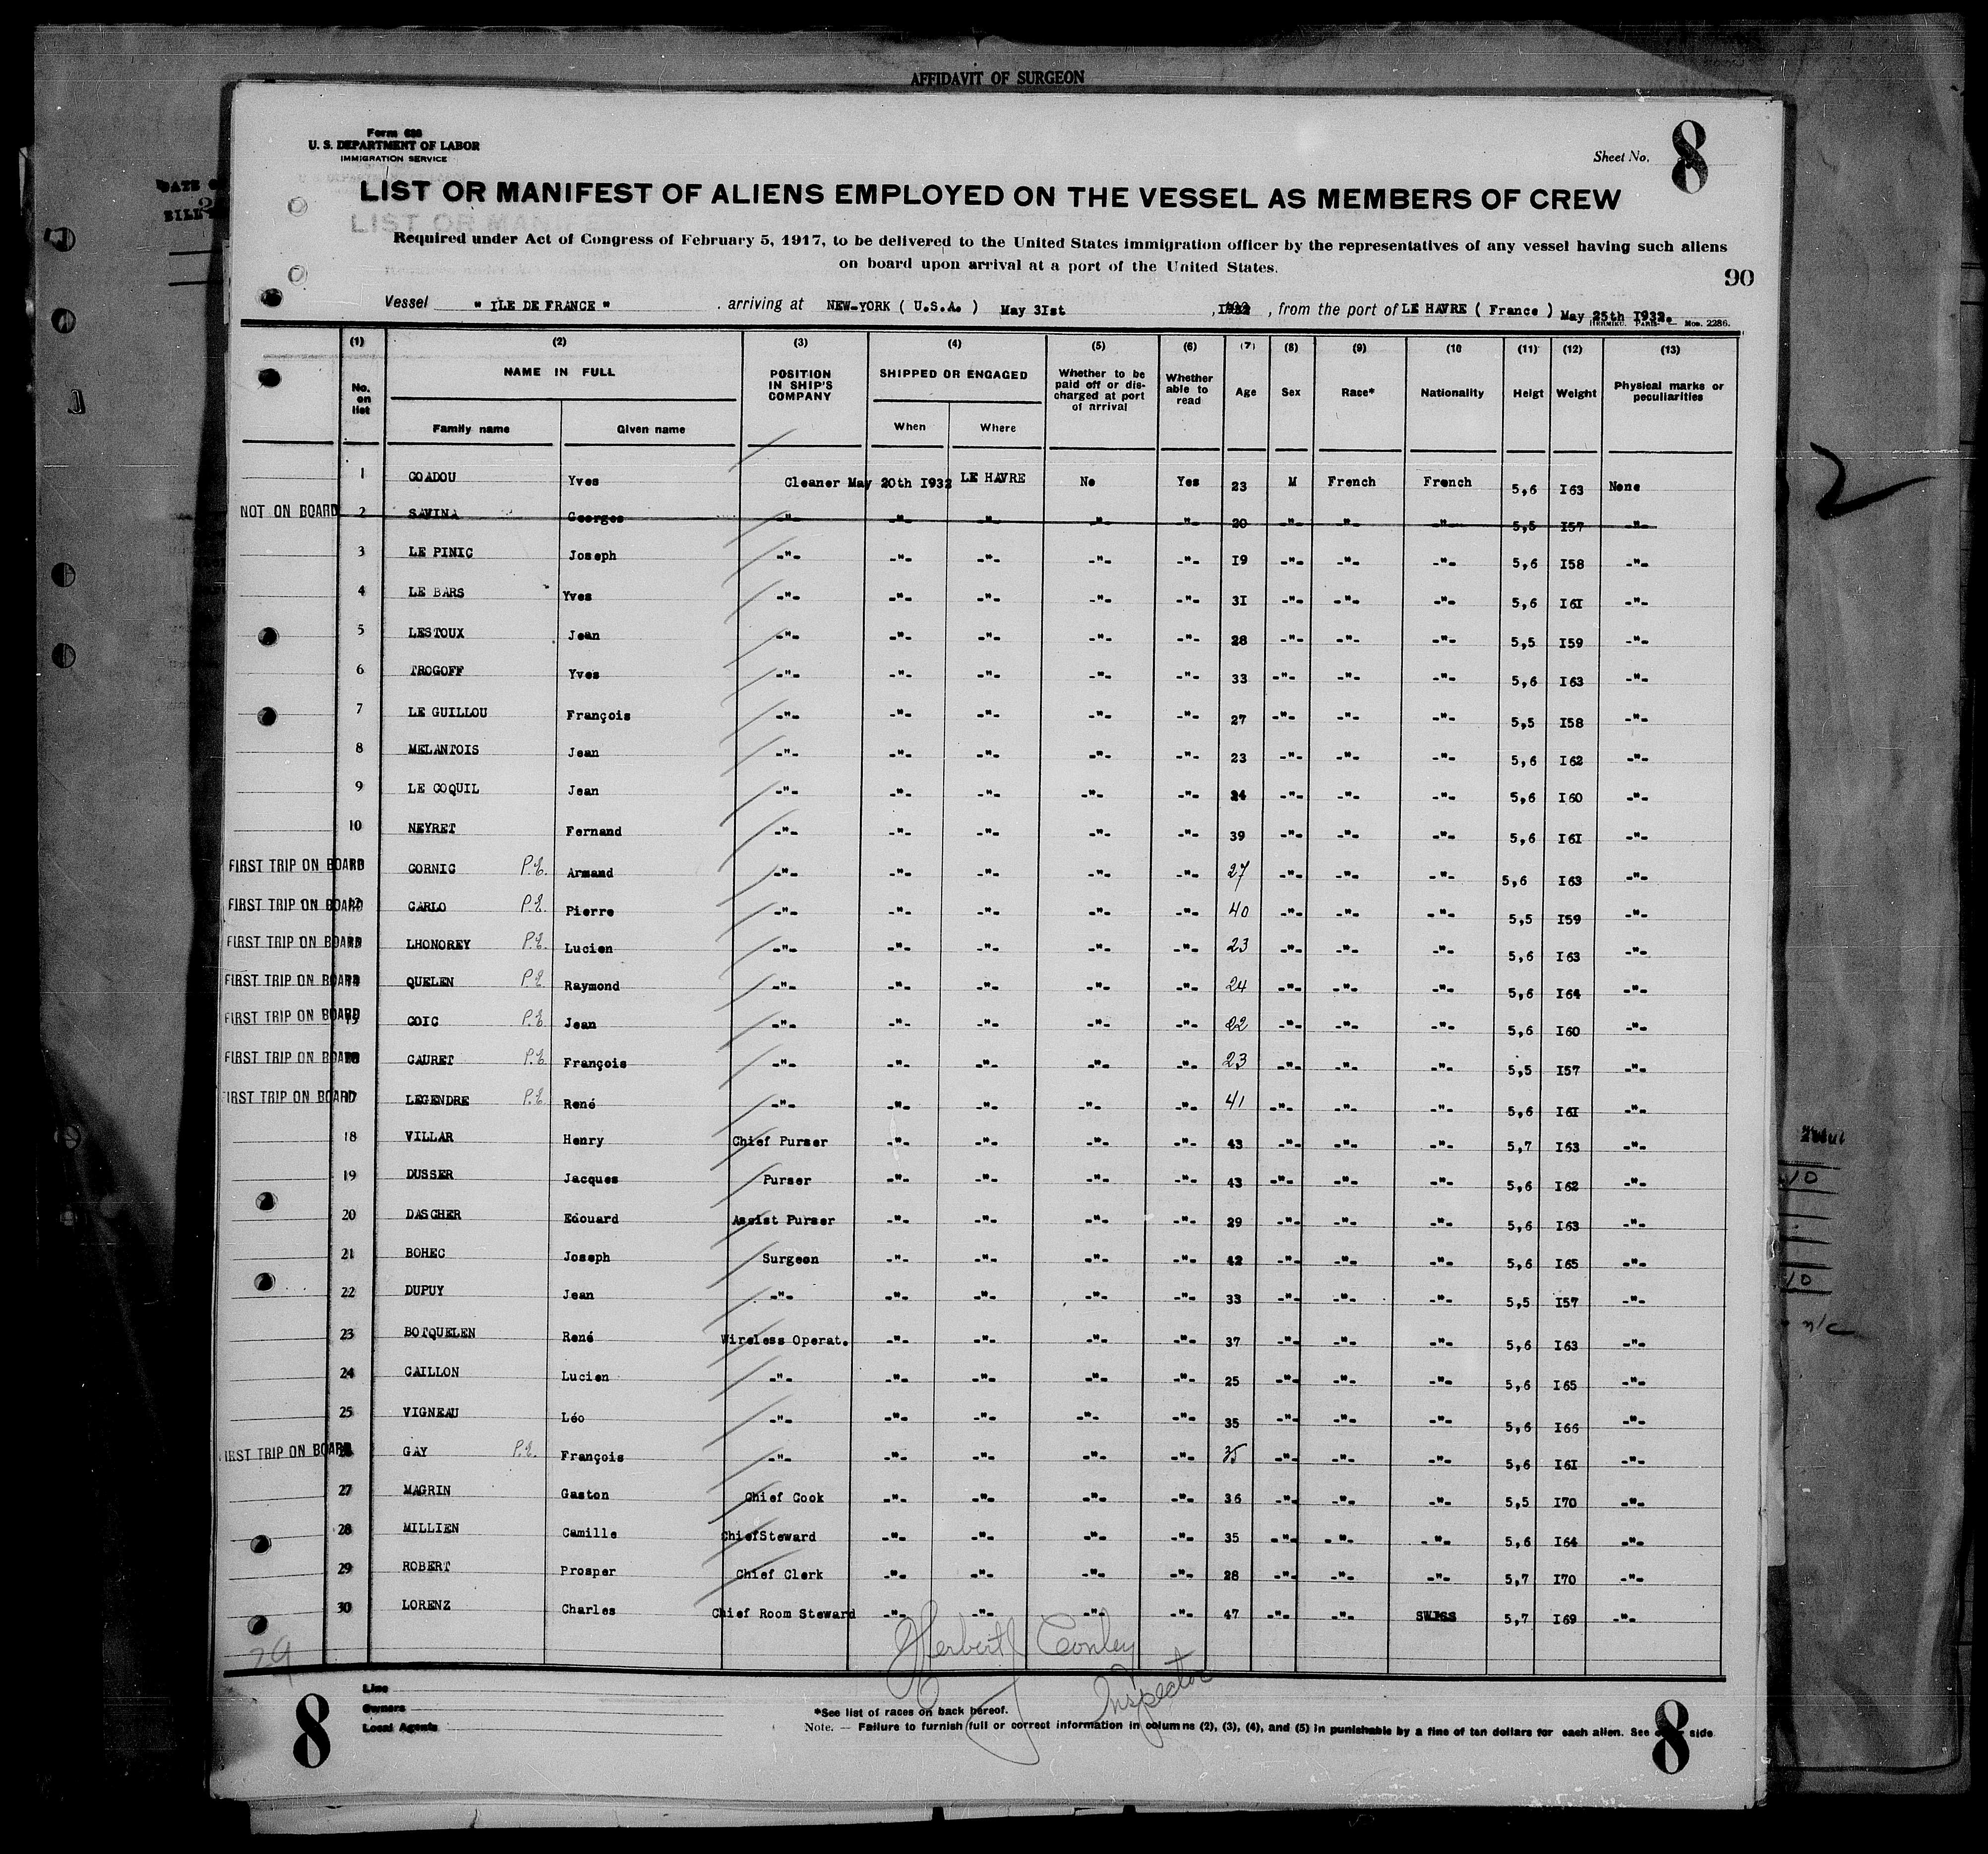 AFFIDAVIT OF SURGEON
Form 688
U. S. DEPARTMENT OF LABOR
IMMIGRATION SERVICE
Sheet No. 8
LIST OR MANIFEST OF ALIENS EMPLOYED ON THE VESSEL AS MEMBERS OF CREW
Required under Act of Congress of February 5, 1917, to be delivered to the United States immigration officer by the representatives of any vessel having such aliens
on board upon arrival at a port of the United States.
90
Vessel " ILE DE FRANCE " arriving at NEW-YORK ( U.S.A. ) May 3Ist , I932 , from the port of LE HAVRE ( France ) May 25th I932.
HERMIEU. PARIS — Mos. 2286.
(1) (2) (3) (4) (5) (6) (7) (8) (9) (10 (11) (12) (13)
No. on list NAME IN FULL POSITION IN SHIP'S COMPANY SHIPPED OR ENGAGED Whether to be paid off or discharged at port of arrival Whether able to read Age Sex Race* Nationality Heigt Weight Physical marks or peculiarities
Family name Given name When Where
1 GOADOU Yves Cleaner May 20th I932 LE HAVRE No Yes 23 M French French 5,6 I63 None
NOT ON BOARD 2 SAVINA Georges -"- -"- -"- -"- -"- 20 -"- -"- -"- 5,5 I57 -"-
3 LE PINIC Joseph -"- -"- -"- -"- -"- I9 -"- -"- -"- 5,6 I58 -"-
4 LE BARS Yves -"- -"- -"- -"- -"- 3I -"- -"- -"- 5,6 I6I -"-
5 LESTOUX Jean -"- -"- -"- -"- -"- 28 -"- -"- -"- 5,5 I59 -"-
6 TROGOFF Yves -"- -"- -"- -"- -"- 33 -"- -"- -"- 5,6 I63 -"-
7 LE GUILLOU François -"- -"- -"- -"- -"- 27 -"- -"- -"- 5,5 I58 -"-
8 MELANTOIS Jean -"- -"- -"- -"- -"- 23 -"- -"- -"- 5,6 I62 -"-
9 LE COQUIL Jean -"- -"- -"- -"- -"- 24 -"- -"- -"- 5,6 I60 -"-
10 NEYRET Fernand -"- -"- -"- -"- -"- 39 -"- -"- -"- 5,6 I6I -"-
FIRST TRIP ON BOARD GORNIC P.E. Armand -"- -"- -"- -"- -"- 27 -"- -"- -"- 5,6 I63 -"-
FIRST TRIP ON BOARD 12 CARLO P.E. Pierre -"- -"- -"- -"- -"- 40 -"- -"- -"- 5,5 I59 -"-
FIRST TRIP ON BOARD 13 LHONOREY P.E. Lucien -"- -"- -"- -"- -"- 23 -"- -"- -"- 5,6 I63 -"-
FIRST TRIP ON BOARD 14 QUELEN P.E. Raymond -"- -"- -"- -"- -"- 24 -"- -"- -"- 5,6 I64 -"-
FIRST TRIP ON BOARD 15 COIC P.E. Jean -"- -"- -"- -"- -"- 22 -"- -"- -"- 5,6 I60 -"-
FIRST TRIP ON BOARD 16 CAURET P.E. François -"- -"- -"- -"- -"- 23 -"- -"- -"- 5,5 I57 -"-
IRST TRIP ON BOARD 17 LEGENDRE P.E. René -"- -"- -"- -"- -"- 41 -"- -"- -"- 5,6 I6I -"-
18 VILLAR Henry Chief Purser -"- -"- -"- -"- 43 -"- -"- -"- 5,7 I63 -"-
19 DUSSER Jacques Purser -"- -"- -"- -"- 43 -"- -"- -"- 5,6 I62 -"-
20 DASCHER Edouard Assist Purser -"- -"- -"- -"- 29 -"- -"- -"- 5,6 I63 -"-
21 BOHEC Joseph Surgeon -"- -"- -"- -"- 42 -"- -"- -"- 5,6 I65 -"-
22 DUPUY Jean -"- -"- -"- -"- -"- 33 -"- -"- -"- 5,5 I57 -"-
23 BOTQUELEN René Wireless Operat. -"- -"- -"- -"- 37 -"- -"- -"- 5,6 I63 -"-
24 CAILLON Lucien -"- -"- -"- -"- -"- 25 -"- -"- -"- 5,6 I65 -"-
25 VIGNEAU Léo -"- -"- -"- -"- -"- 35 -"- -"- -"- 5,6 I66 -"-
IRST TRIP ON BOARD 26 GAY P.E. François -"- -"- -"- -"- -"- 35 -"- -"- -"- 5,6 I6I -"-
27 MAGRIN Gaston Chief Cook -"- -"- -"- -"- 36 -"- -"- -"- 5,5 I70 -"-
28 MILLIEN Camille ChiefSteward -"- -"- -"- -"- 35 -"- -"- -"- 5,6 I64 -"-
29 ROBERT Prosper Chief Clerk -"- -"- -"- -"- 28 -"- -"- -"- 5,7 I70 -"-
30 LORENZ Charles Chief Room Steward -"- -"- -"- -"- 47 -"- -"- SWISS 5,7 I69 -"-
29
Herbert J Conley
Inspector
8
Line
Owners
Local Agents
*See list of races on back hereof.
Note. — Failure to furnish full or correct information in columns (2), (3), (4), and (5) in punishable by a fine of ten dollars for each alien. See side
8
2
10
10